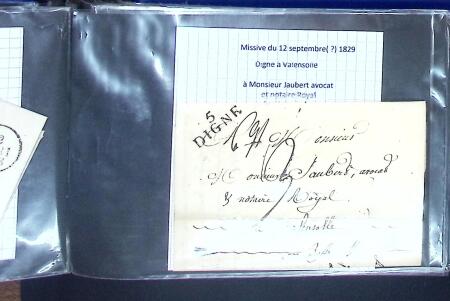 Missive du 12 septembre( ?) 1829
Digne à Valensolle
à Monsieur Jaubert avocat
et notaire Royal
5
DIGNE
A Monsieur
Monsieur Jaubert, avocat
& notaire Royal